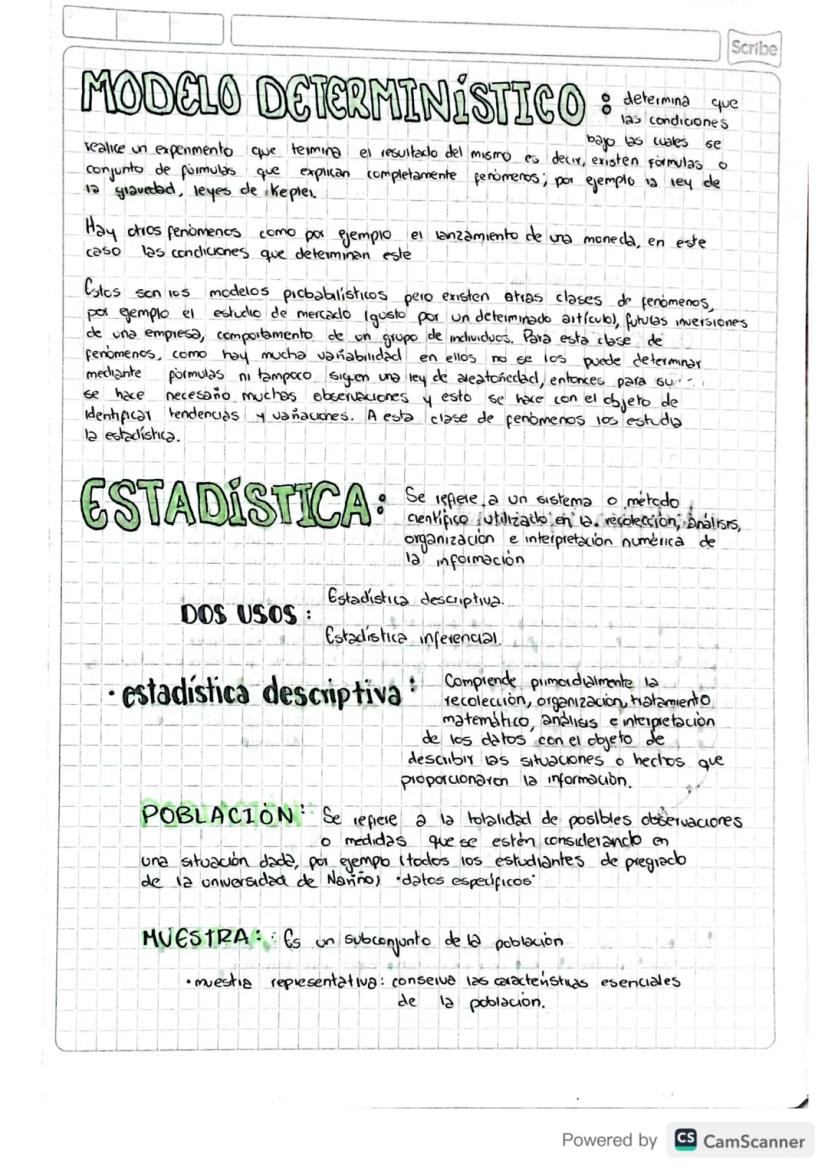 Scribe
MODELO DETERMINÍSTICO : determina que
las condiciones
bajo las cuales se
realice un experimento que termina el resultado del mismo es decir, existen fórmulas o
conjunto de fórmulas que explican completamente fenómenos; por ejemplo la ley de
la gravedad, leyes de Kepler.
Hay otros fenómenos como por ejemplo el lanzamiento de una moneda, en este
caso las condiciones que determinan este
Estos son los modelos probabilísticos pero existen otras clases de fenómenos,
por ejemplo el estudio de mercado (gusto por un determinado artículo), futuras inversiones
de una empresa, comportamiento de un grupo de individuos. Para esta clase de
fenómenos, como hay mucha variabilidad en ellos no se los puede determinar
mediante fórmulas ni tampoco siguen una ley de aleatoriedad, entonces para su
se hace necesario muchas observaciones y esto se hace con el objeto de
identificar tendencias y variaciones. A esta clase de fenómenos los estudia
la estadística.
ESTADÍSTICA: Se refiere a un sistema o método
científico utilizado en la recolección, análisis,
organización e interpretación numérica de
la información
DOS USOS: Estadística descriptiva.
Estadística inferencial.
· estadística descriptiva: Comprende primordialmente la
recolección, organización, tratamiento
matemático, análisis e interpretación
de los datos con el objeto de
describir las situaciones o hechos que
proporcionaron la información.
POBLACIÓN: Se refiere a la totalidad de posibles observaciones
o medidas que se estén considerando en
una situación dada, por ejemplo (todos los estudiantes de pregrado
de la universidad de Nariño) "datos específicos"
MUESTRA: Es un subconjunto de la población
· muestra representativa: conserva las características esenciales
de la población.
Powered by CS CamScanner